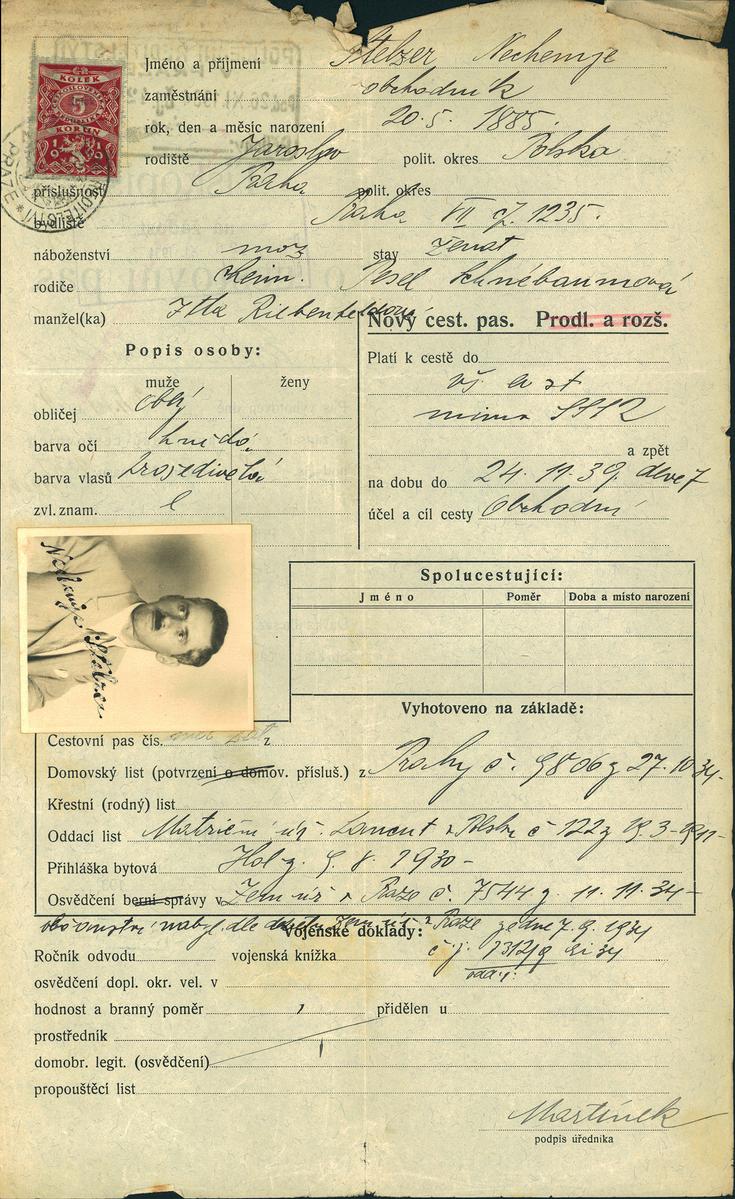 KOLEK
5
KORUN
1919
PRAZE
ŘEDITELSTVÍ
Jméno a příjmení Stelzer Nechemje
zaměstnání obchodník
rok, den a měsíc narození 20. 5. 1885.
rodiště Jaroslav polit. okres Polska
příslušnost Praha polit. okres
bydliště Praha VII čj. 1235.
náboženství moz stav ženat
rodiče Chaim. Pesel Schnébaumová
manžel(ka) Itta
Nový cest. pas. Prodl. a rozš.
Popis osoby:
muže ženy
obličej oblý
barva očí hnědá
barva vlasů prošedivělá
zvl. znam.
Platí k cestě do
vš. ev. st
mimo SSSR
a zpět
na dobu do 24. 11. 39.
účel a cíl cesty Obchodní
Nechemje Stelzer
Spolucestující:
Jméno Poměr Doba a místo narození
Vyhotoveno na základě:
Cestovní pas čís. z
Domovský list (potvrzení o domov. přísluš.) z Prahy č. 9806 z 27. 10 34-
Křestní (rodný) list
Oddací list Matriční úř. Lancut v Polsku č 122 z 19. 3-1911-
Přihláška bytová Hol z. 5. 8. 1930-
Osvědčení berní správy v Zem úř v Praze č. 7544 z. 11. 11. 34-
občanství nabyl dle Zem úř v Praze ze dne 7. 9. 1934
Vojenské doklady:
Ročník odvodu vojenská knížka
osvědčení dopl. okr. vel. v
hodnost a branný poměr přidělen u
prostředník
domobr. legit. (osvědčení)
propouštěcí list
Martínek
podpis úředníka